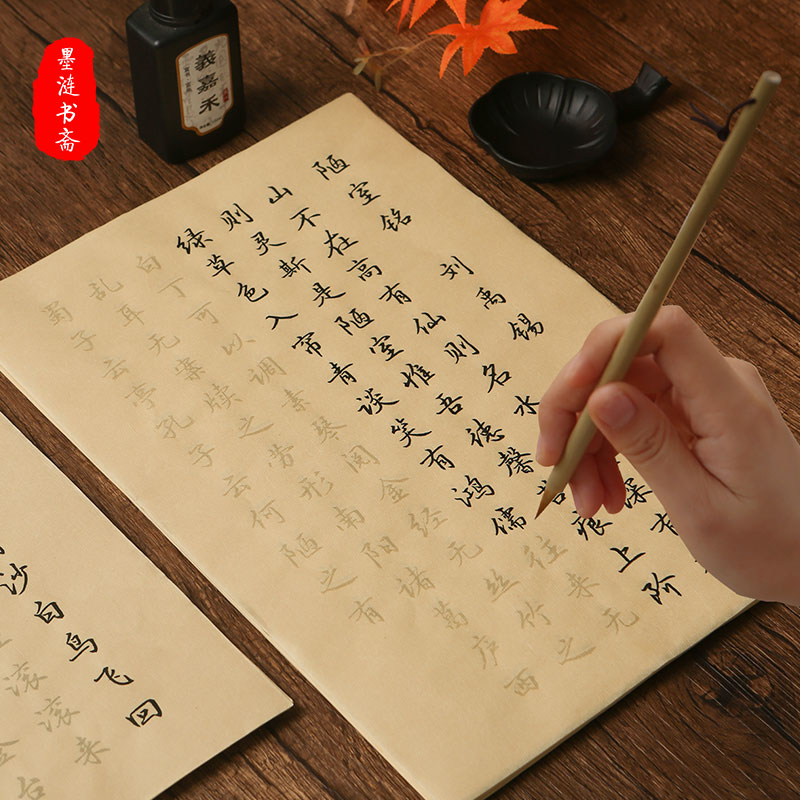 墨涟书斋
義嘉禾
陋室铭 刘禹锡
山不在高有仙则名水 深有
则灵斯是陋室惟吾德馨苔痕上阶
绿草色入帘青谈笑有鸿儒往来无
白丁可以调素琴阅金经无丝竹之
乱耳无案牍之劳形南阳诸葛庐西
蜀子云亭孔子云何陋之有
沙白鸟飞回
滚滚来
台